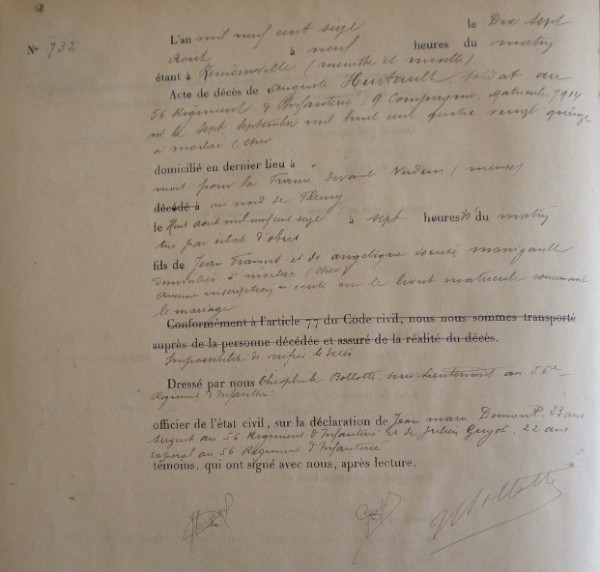 L'an mil neuf cent seize le Dix sept
N° 732
Aout à neuf heures du matin
étant à (meurthe et moselle)
Acte de décès de Auguste Hurtault, soldat au
56 Regiment d'Infanterie 9 Compagnie, Matricule 7914
né le sept septembre mil huit cent quatre vingt quinze
à morlac (cher
domicilié en dernier lieu à
mort pour la France devant Verdun (meuse)
décédé à au nord de Fleury
le Huit Aout mil neuf cent seize à sept heures 30 du matin
tué par eclat d'obus
fils de Jean Francois et de angelique manigault
domiciliés à morlac (cher)
aucune inscription sur le livret matricule concernant
le mariage
Conformément à l'article 77 du Code civil, nous nous sommes transporté
auprès de la personne décédée et assuré de la réalité du décès.
Impossibilité de verifier le décès
Dressé par nous Théophile Bollotte, sous-lieutenant au 56e
Regiment d'Infanterie
officier de l'état civil, sur la déclaration de Jean marie 23 ans
sergent au 56 Regiment d'Infanterie et de Julien Guyot, 22 ans
caporal au 56 Regiment d'Infanterie
témoins, qui ont signé avec nous, après lecture.
Bollotte